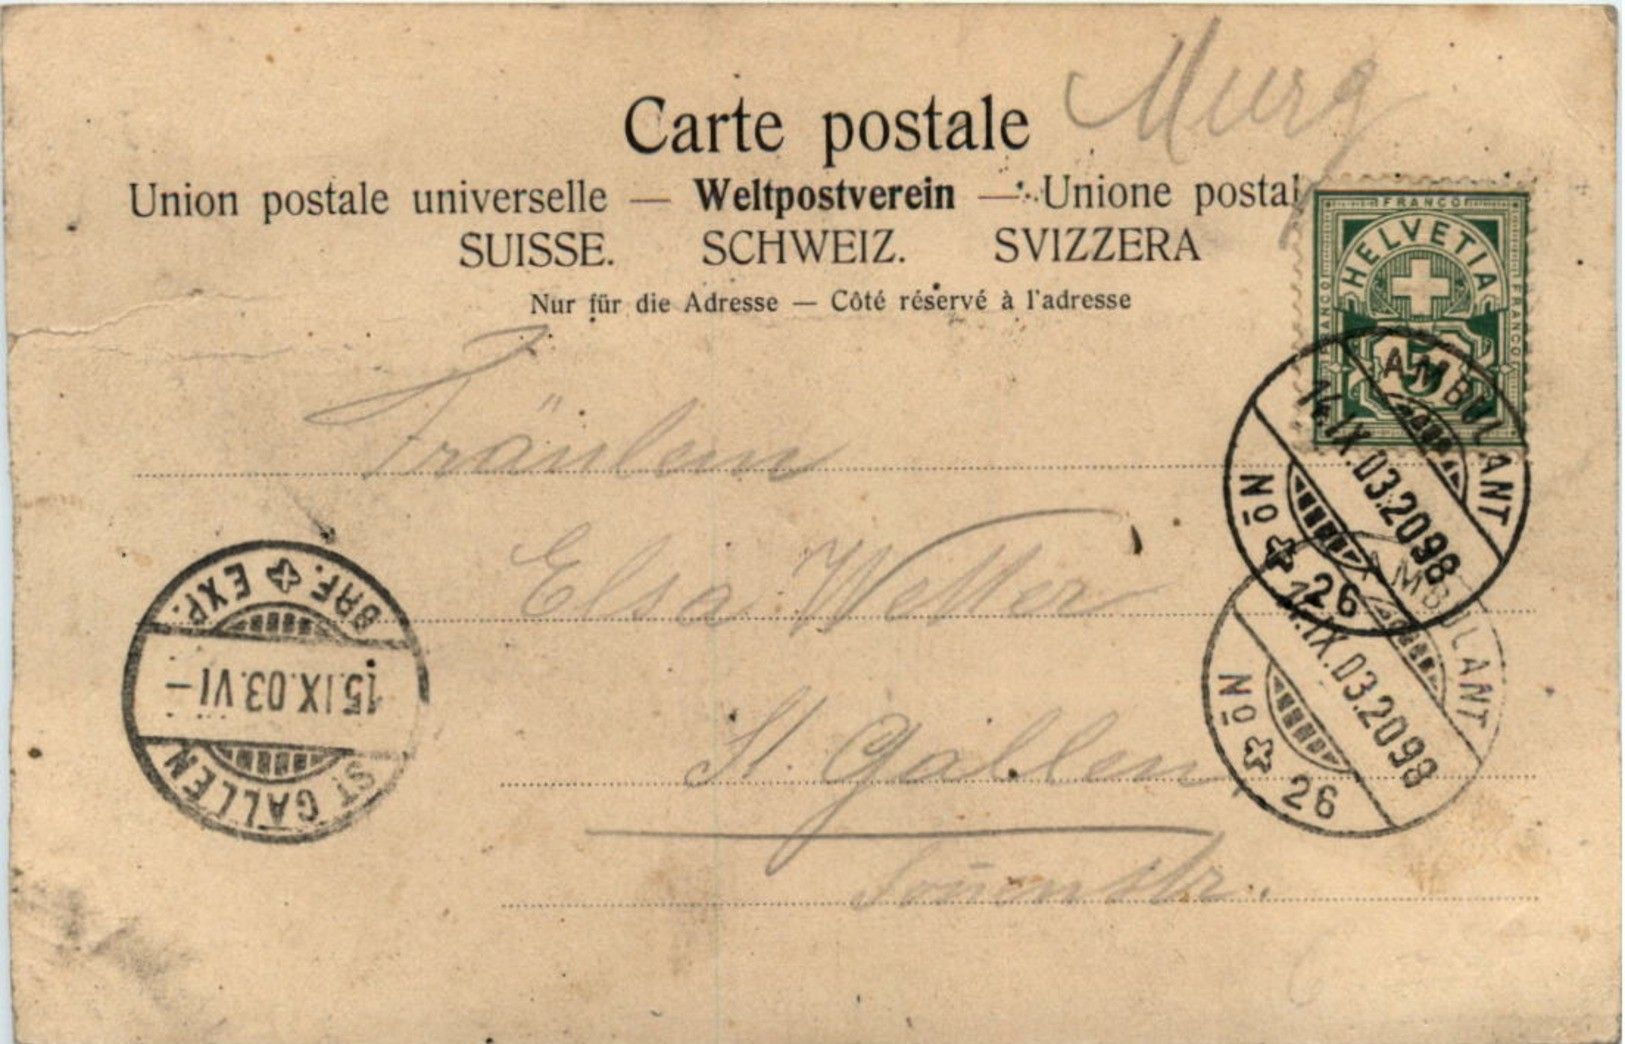 Murg
Carte postale
Union postale universelle — Weltpostverein — Unione postal
SUISSE. SCHWEIZ. SVIZZERA
Nur für die Adresse — Côté réservé à l'adresse
FRANCO
HELVETIA
FRANCO
FRANCO
5
AMBULANT
14.IX.03.2098
No 26
AMBULANT
14.IX.03.2098
No 26
Fräulein
Elsa Wetter
St. Gallen
ST GALLEN
15.IX.03.VI–
BRF. EXP.